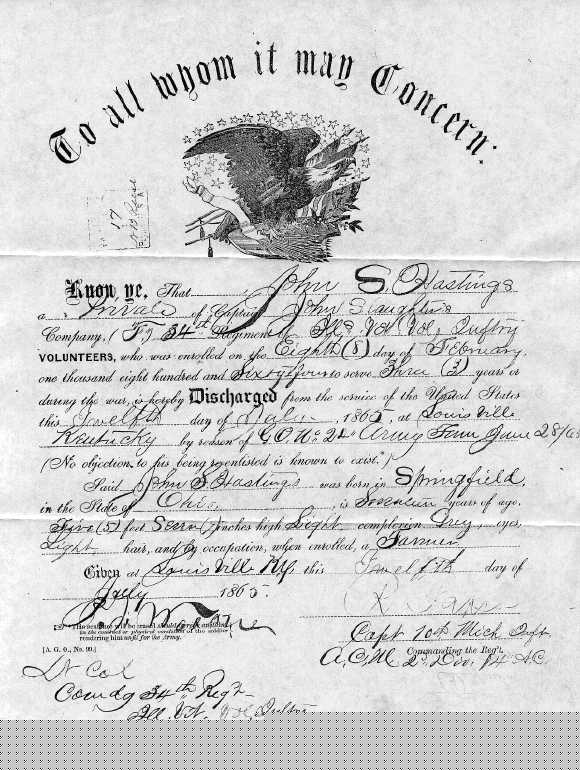 To all whom it may Concern:
17
Know ye, That John S. Hastings
a Private of Captain John Slaughter's
Company, (F) 34th Regiment of Ills. Vet. Vol. Infty
VOLUNTEERS, who was enrolled on the Eighth (8) day of February
one thousand eight hundred and Sixty four to serve Three (3) years or
during the war, is hereby Discharged from the service of the United States
this Twelfth day of July, 1865, at Louis Ville
Kentucky by reason of G.O. No 24 Army Tenn June 28/65
(No objection to his being re-enlisted is known to exist.)
Said John S Hastings was born in Springfield,
in the State of Ohio, is years of age,
Five (5) feet Seven (7) inches high Light complexion Grey, eyes,
Light hair, and by occupation, when enrolled, a Farmer
Given at Louis Ville Ky this Twelfth day of
July 1865.
[A. G. O., No. 99.]
Capt 10th Mich Infty
Commanding the Reg't.
A.C.M. 2d Div. 14 A.C.
Lt Col
Comdg 34th Regt
Ill. Vet. Vol. Infty